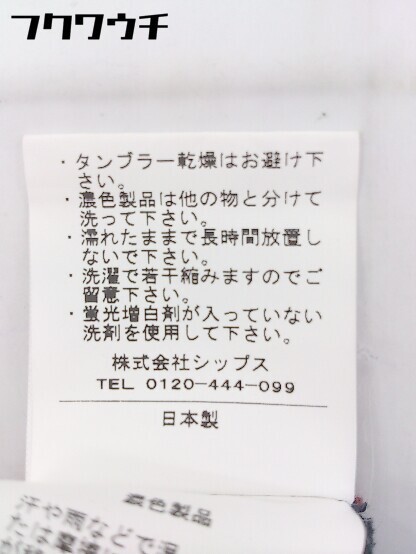 フクワウチ
・タンブラー乾燥はお避け下
さい。
・濃色製品は他の物と分けて
洗って下さい。
・濡れたままで長時間放置し
ないで下さい。
・洗濯で若干縮みますのでご
留意下さい。
・蛍光増白剤が入っていない
洗剤を使用して下さい。
株式会社シップス
TEL 0120-444-099
日本製
濃色製品
汗や雨などで湿
たは摩擦に